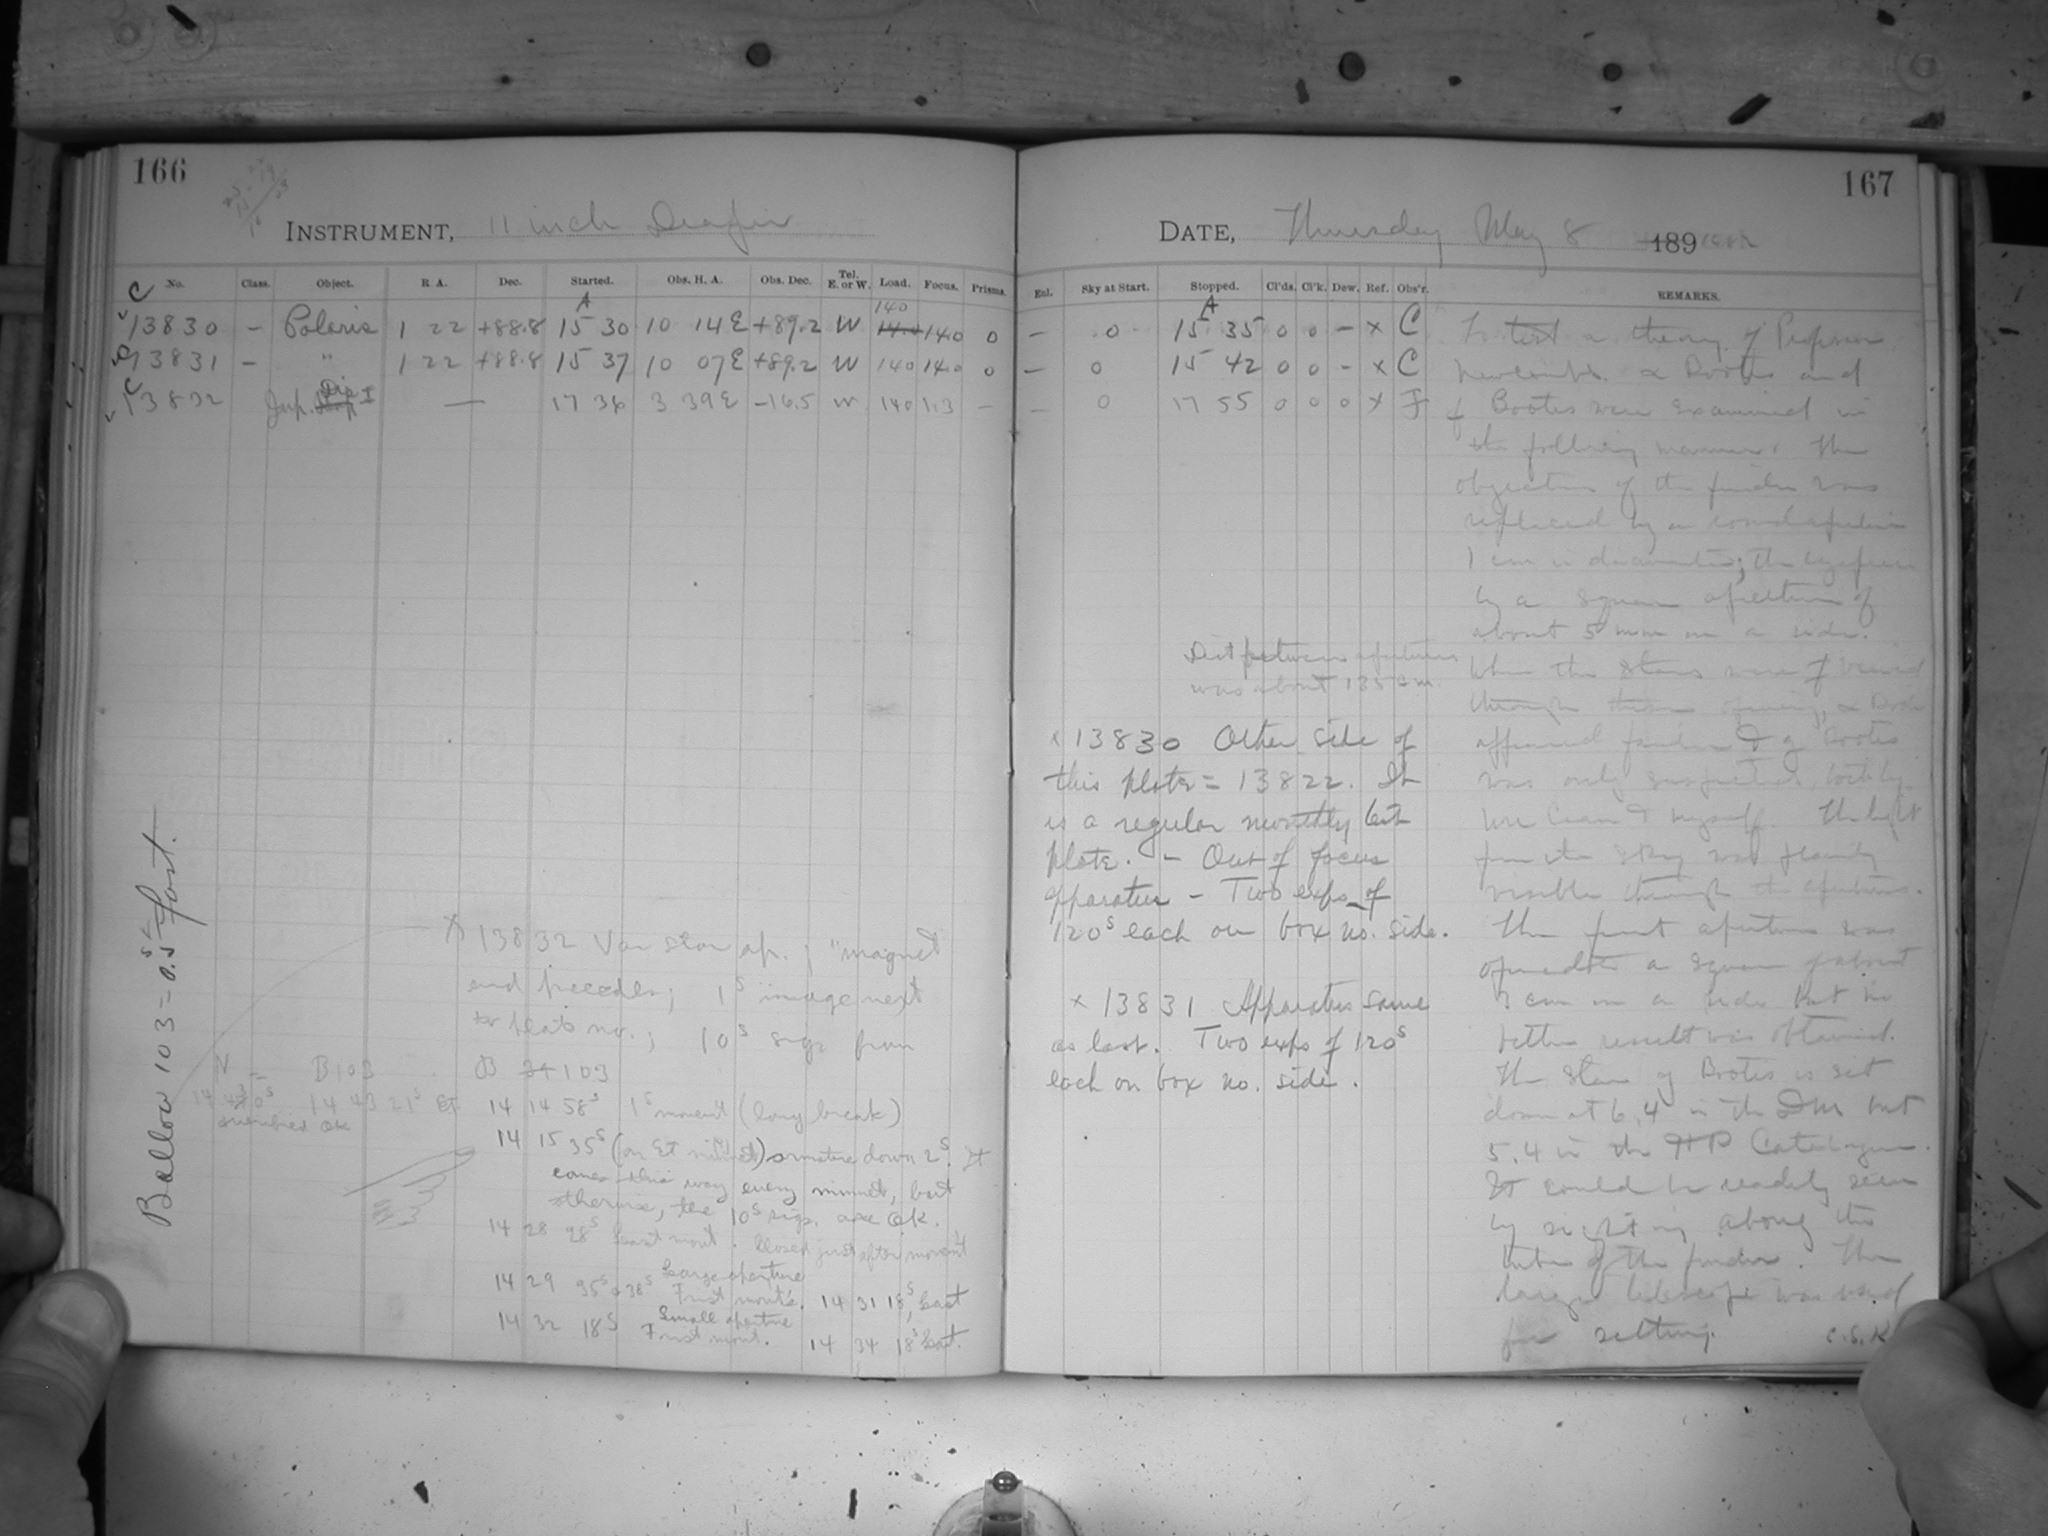 166
INSTRUMENT, 11 inch Draper
No. Class. Object. R. A. Dec. Started. Obs. H. A. Obs. Dec. Tel. E. or W. Load. Focus. Prisms.
C A 140
13830 – Polaris 1 22 +88.8 15 30 10 14 E +89.2 W 14.0 14.0 0
13831 – " 1 22 +88.8 15 37 10 07 E +89.2 W 140 14.0 0
C
13832 Jup. I — 17 36 3 39 E -16.5 W 140 1.3 –
Ballow 103 = 0.5s fast.
13832 Var star ap.; "magnet
end precedes; 1s image next
to plate no.; 10s sigs from
B 103
B103
14 43 21s
14 14 58s 1s moment (long break)
14 15 35s armature down 2s. It
comes this way every minute, but
otherwise, the 10s sigs. are OK.
14 28 98s Last mont. Closed just after moment
Large aperture
14 29 First mont. 14 31 18s, Last
Small aperture
14 32 18s First mont. 14 34 18s Last.
167
DATE, Thursday May 8 189
Enl. Sky at Start. Stopped. Cl'ds. Cl'k. Dew. Ref. Obs'r. REMARKS.
A
– 0 15 35 0 0 – x C
– 0 15 42 0 0 – x C
– 0 17 55 0 0 0 x F
Dist between apertures
was about 135 cm.
x 13830 Other side of
this plate = 13822. It
is a regular monthly test
plate. – Out of focus
apparatus – Two exps of
120s each on box no. side.
x 13831 Apparatus same
as last. Two exps of 120s
each on box no. side.
To test a theory of Professor
Newcomb's α Bootis and
g Bootis were examined in
the following manner. The
objective of the finder was
replaced by a round aperture
1 cm in diameter; the eyepiece
by a square aperture of
about 5 mm on a side.
When the stars were viewed
through these openings, α Boötis
appeared faint & g Bootis
was only suspected, both by
Mr. and myself. The light
from the sky was plainly
visible through the apertures.
The first aperture was
opened to a square of about
3 cm on a side but no
better result was obtained.
The star g Bootis is set
down at 6.4 in the DM but
5.4 in the HP Catalogue.
It could be readily seen
by sighting along the
tube of the finder. The
large telescope was used
for setting. C.S.K.